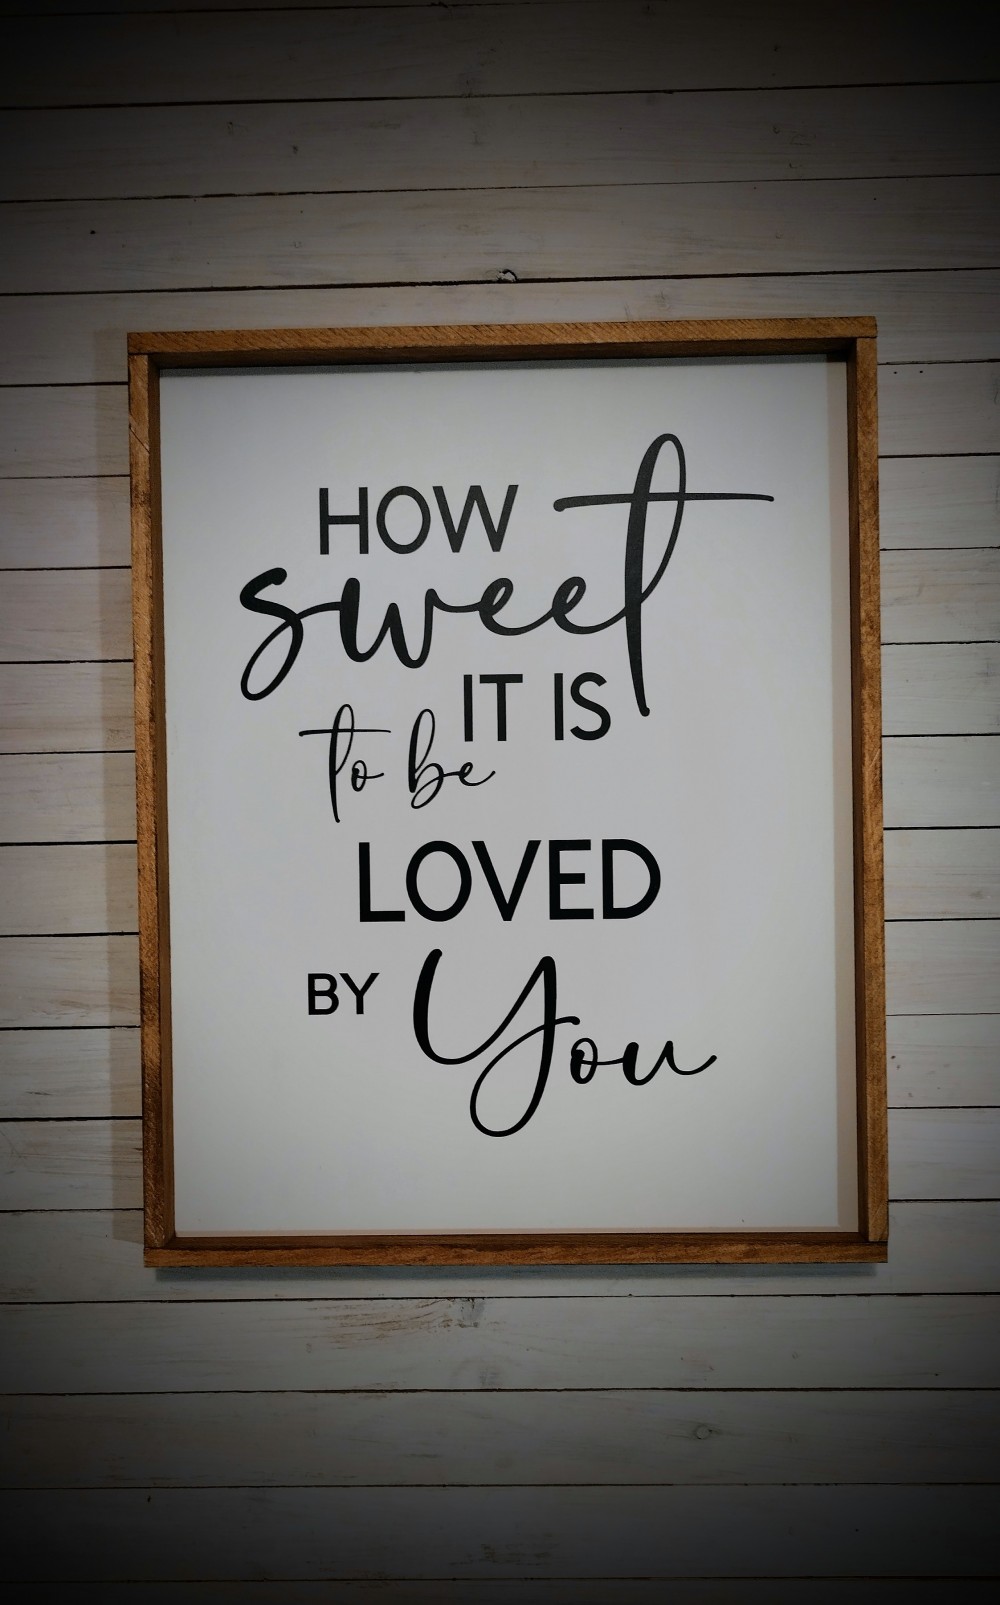 HOW
sweet
IT IS
to be
LOVED
BY You